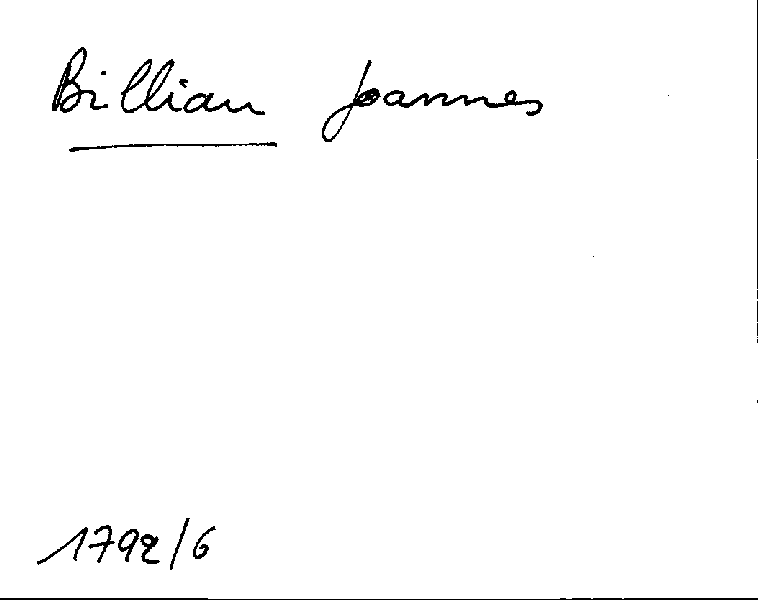 Billian Joannes
1792/6